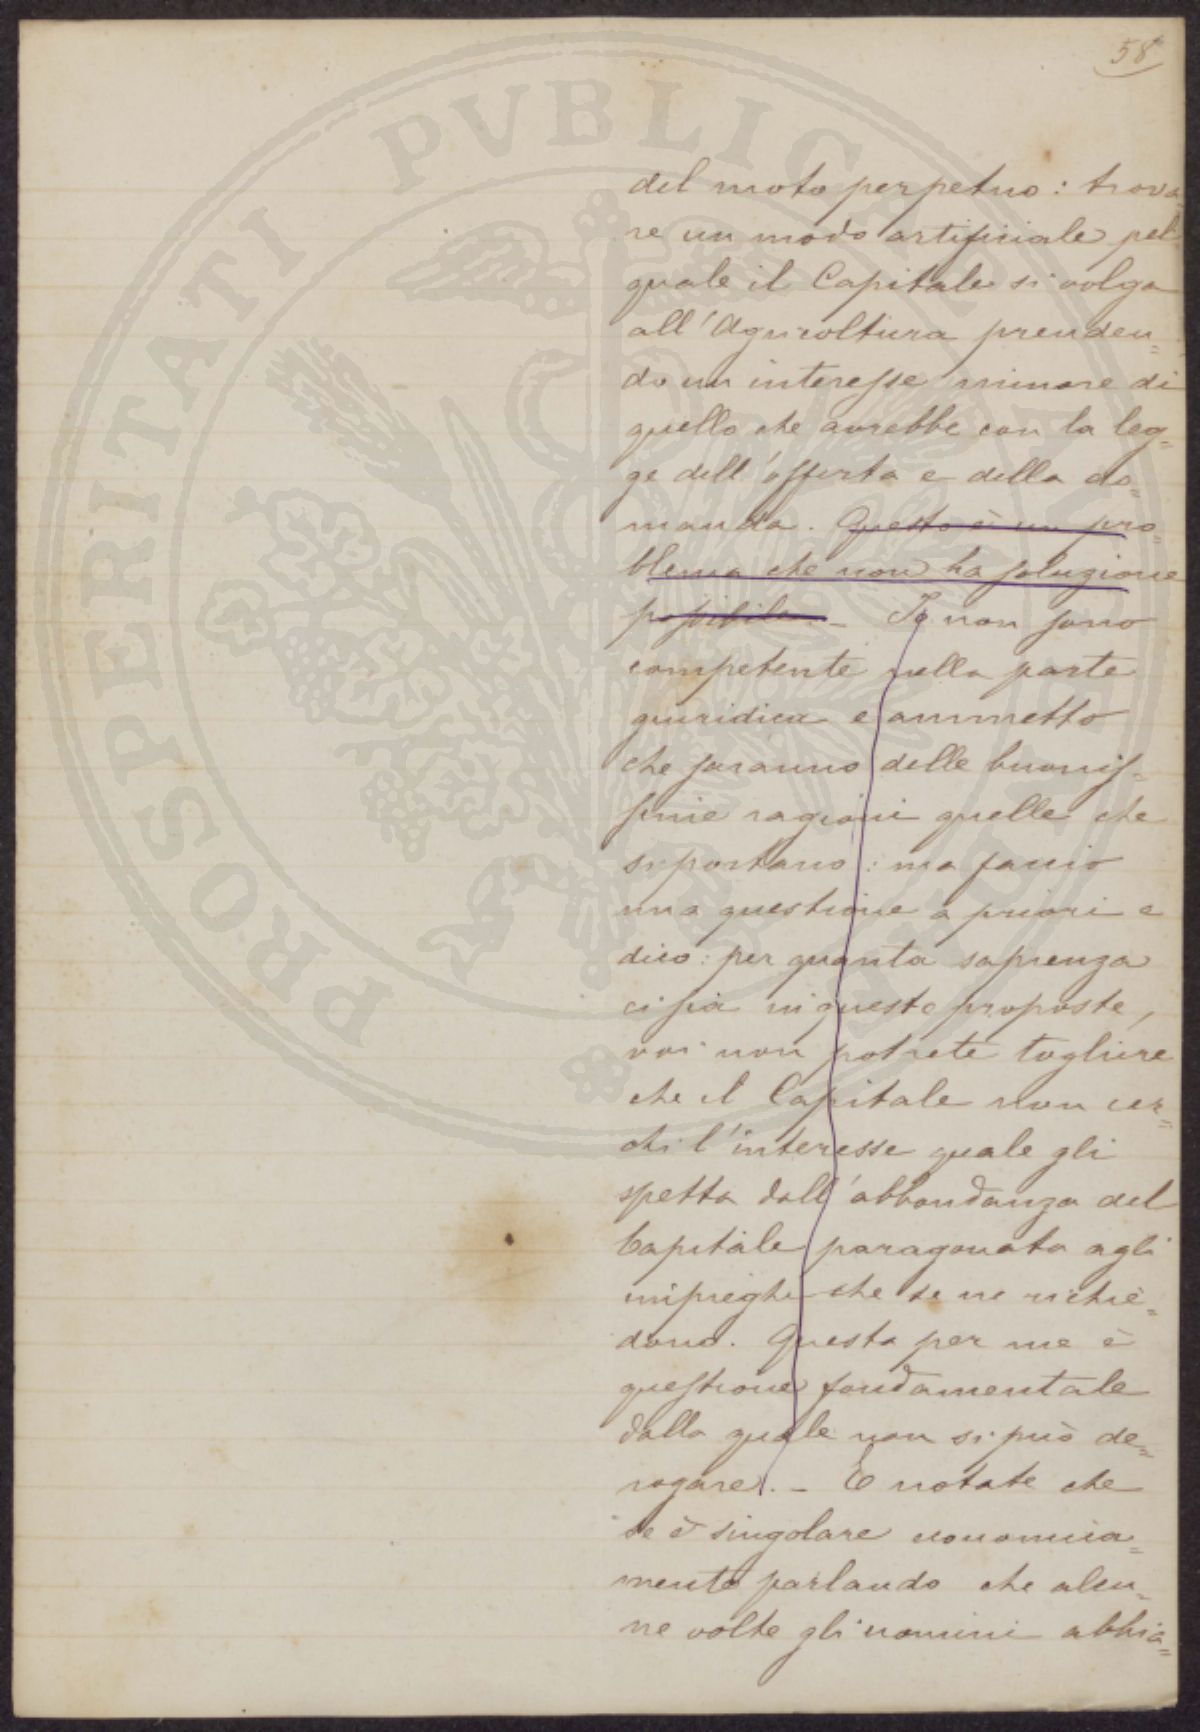 58
del moto perpetuo: trova=
re un modo artificiale pel
quale il Capitale si volga
all'Agricoltura prenden=
do un interesse minore di
quello che avrebbe con la leg=
ge dell'offerta e della do=
manda. Questo è un pro=
blema che non ha soluzione
possibile. _ Io non sono
competente nella parte
giuridica e ammetto
che saranno delle buonis=
sime ragioni quelle che
si portano: ma faccio
una questione a priori e
dico: per quanta sapienza
ci sia in queste proposte,
voi non potrete togliere
che il Capitale non cer=
chi l'interesse quale gli
spetta dall'abbondanza del
Capitale paragonata agli
impieghi che se ne richie=
dono. Questa per me è
questione fondamentale
dalla quale non si può de=
rogare. _ E notate che
se è singolare economica=
mente parlando che alcu=
ne volte gli uomini abbia=
PROSPERITATI PVBLICAE